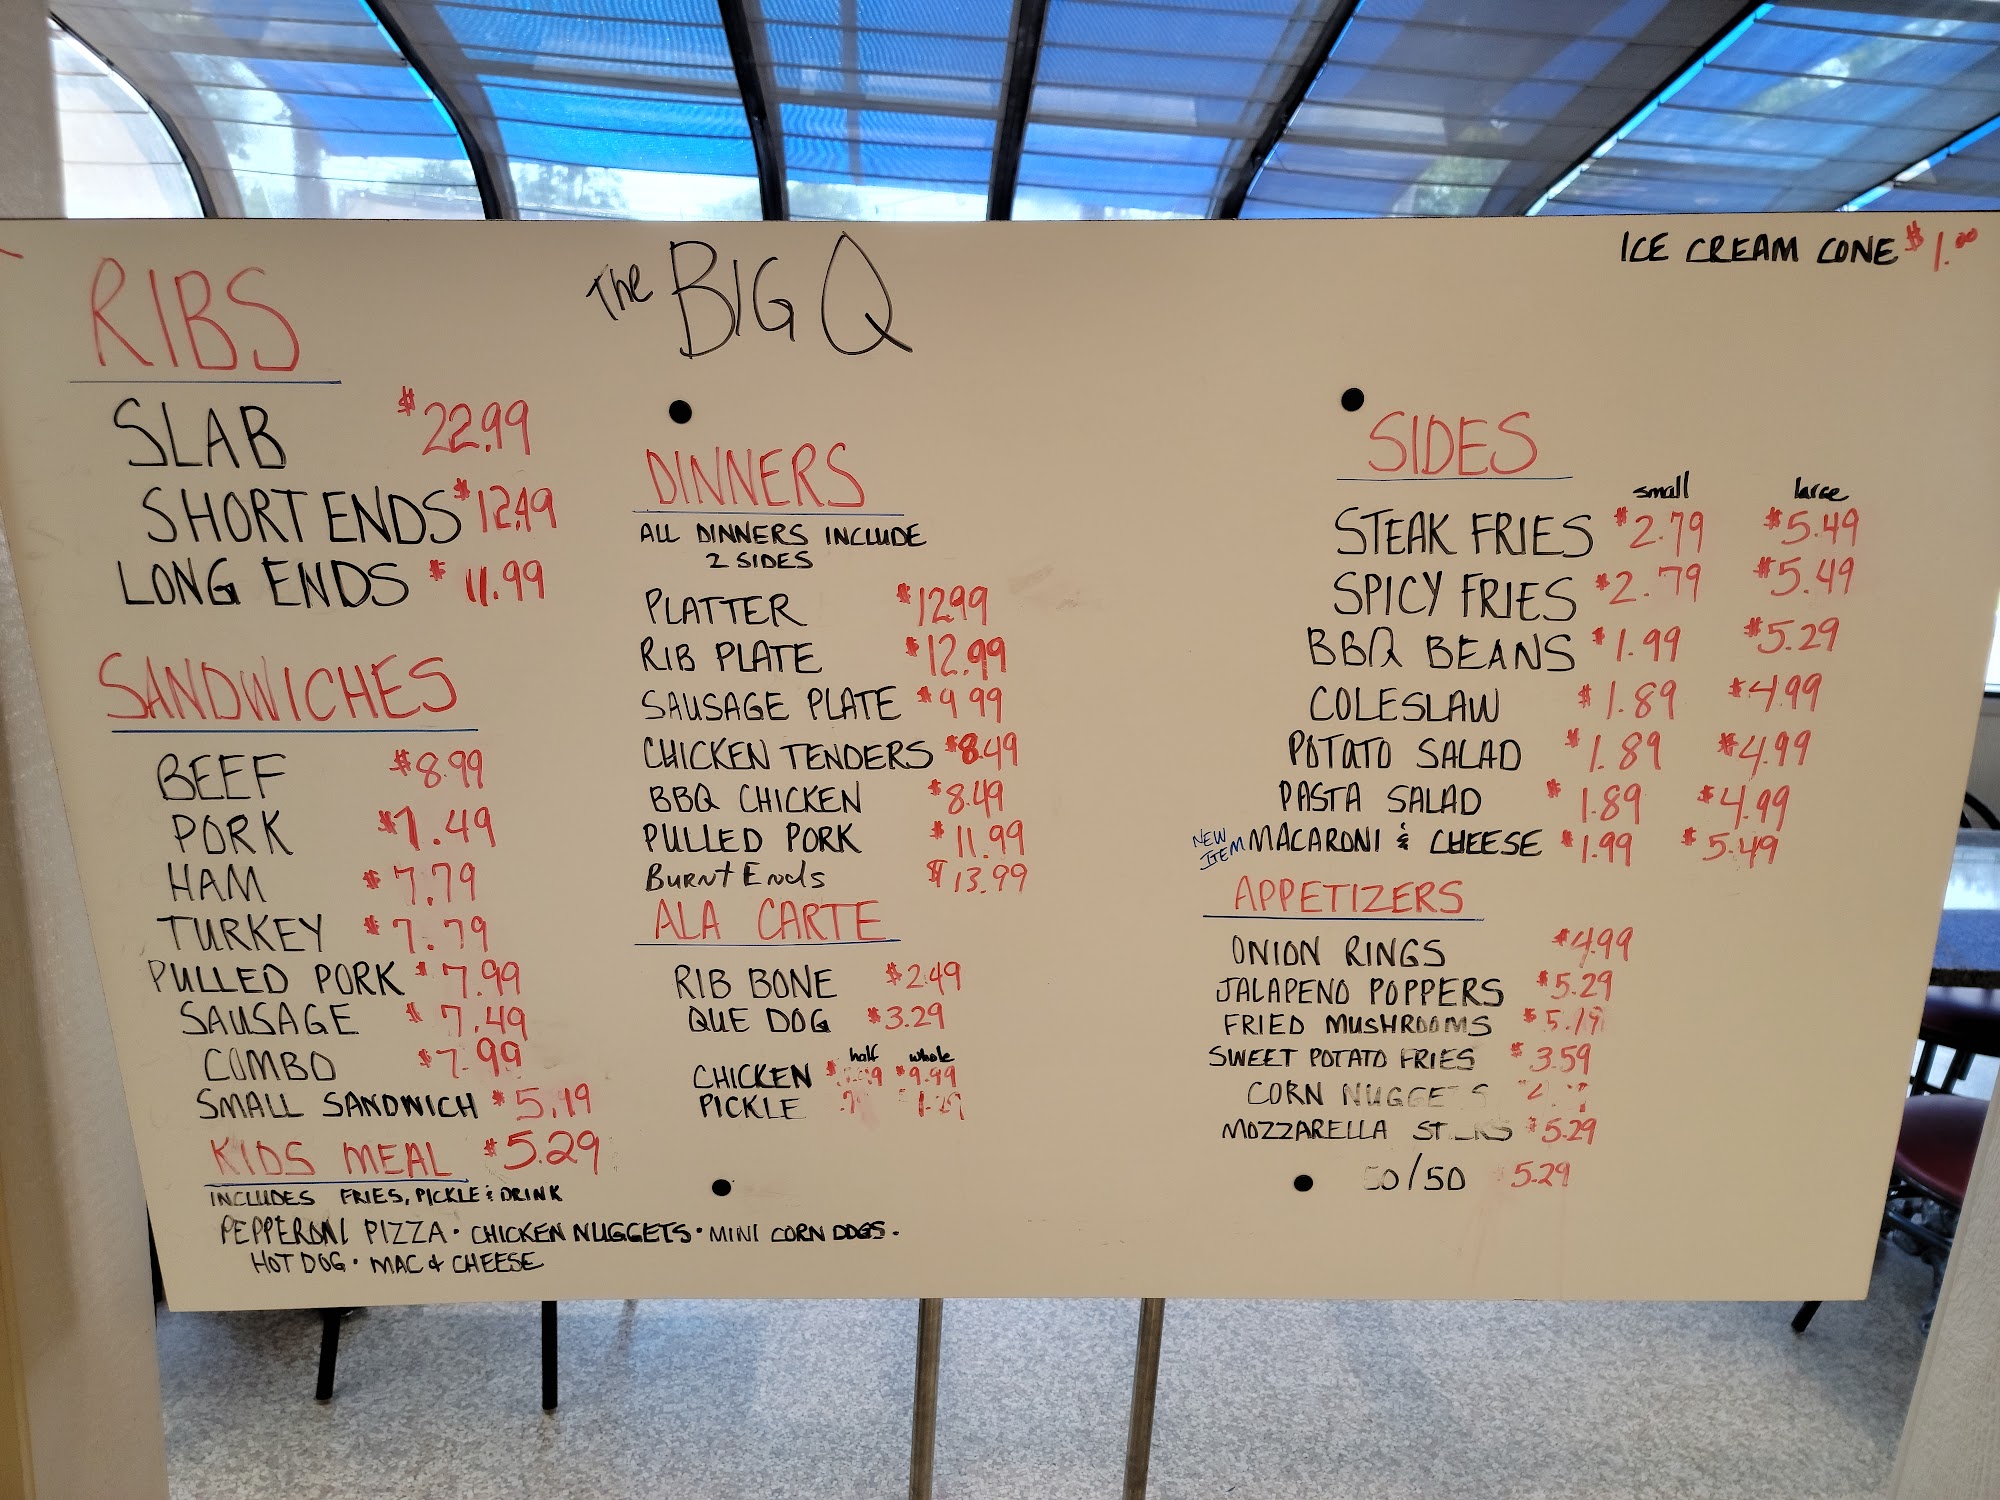 The BIG Q
ICE CREAM CONE $1.00
RIBS
SLAB $22.99
SHORT ENDS $12.49
LONG ENDS $11.99
SANDWICHES
BEEF $8.99
PORK $7.49
HAM $7.79
TURKEY $7.79
PULLED PORK $7.99
SAUSAGE $7.49
COMBO $7.99
SMALL SANDWICH $5.19
KIDS MEAL $5.29
INCLUDES FRIES, PICKLE & DRINK
PEPPERONI PIZZA · CHICKEN NUGGETS · MINI CORN DOGS ·
HOT DOG · MAC & CHEESE
DINNERS
ALL DINNERS INCLUDE
2 SIDES
PLATTER $12.99
RIB PLATE $12.99
SAUSAGE PLATE $9.99
CHICKEN TENDERS $8.49
BBQ CHICKEN $8.49
PULLED PORK $11.99
Burnt Ends $13.99
ALA CARTE
RIB BONE $2.49
QUE DOG $3.29
half whole
CHICKEN $9.99
PICKLE
SIDES
small large
STEAK FRIES $2.79 $5.49
SPICY FRIES $2.79 $5.49
BBQ BEANS $1.99 $5.29
COLESLAW $1.89 $4.99
POTATO SALAD $1.89 $4.99
PASTA SALAD $1.89 $4.99
NEW ITEM MACARONI & CHEESE $1.99 $5.49
APPETIZERS
ONION RINGS $4.99
JALAPENO POPPERS $5.29
FRIED MUSHROOMS $5.19
SWEET POTATO FRIES $3.59
CORN NUGGETS
MOZZARELLA STICKS $5.29
50/50 5.29